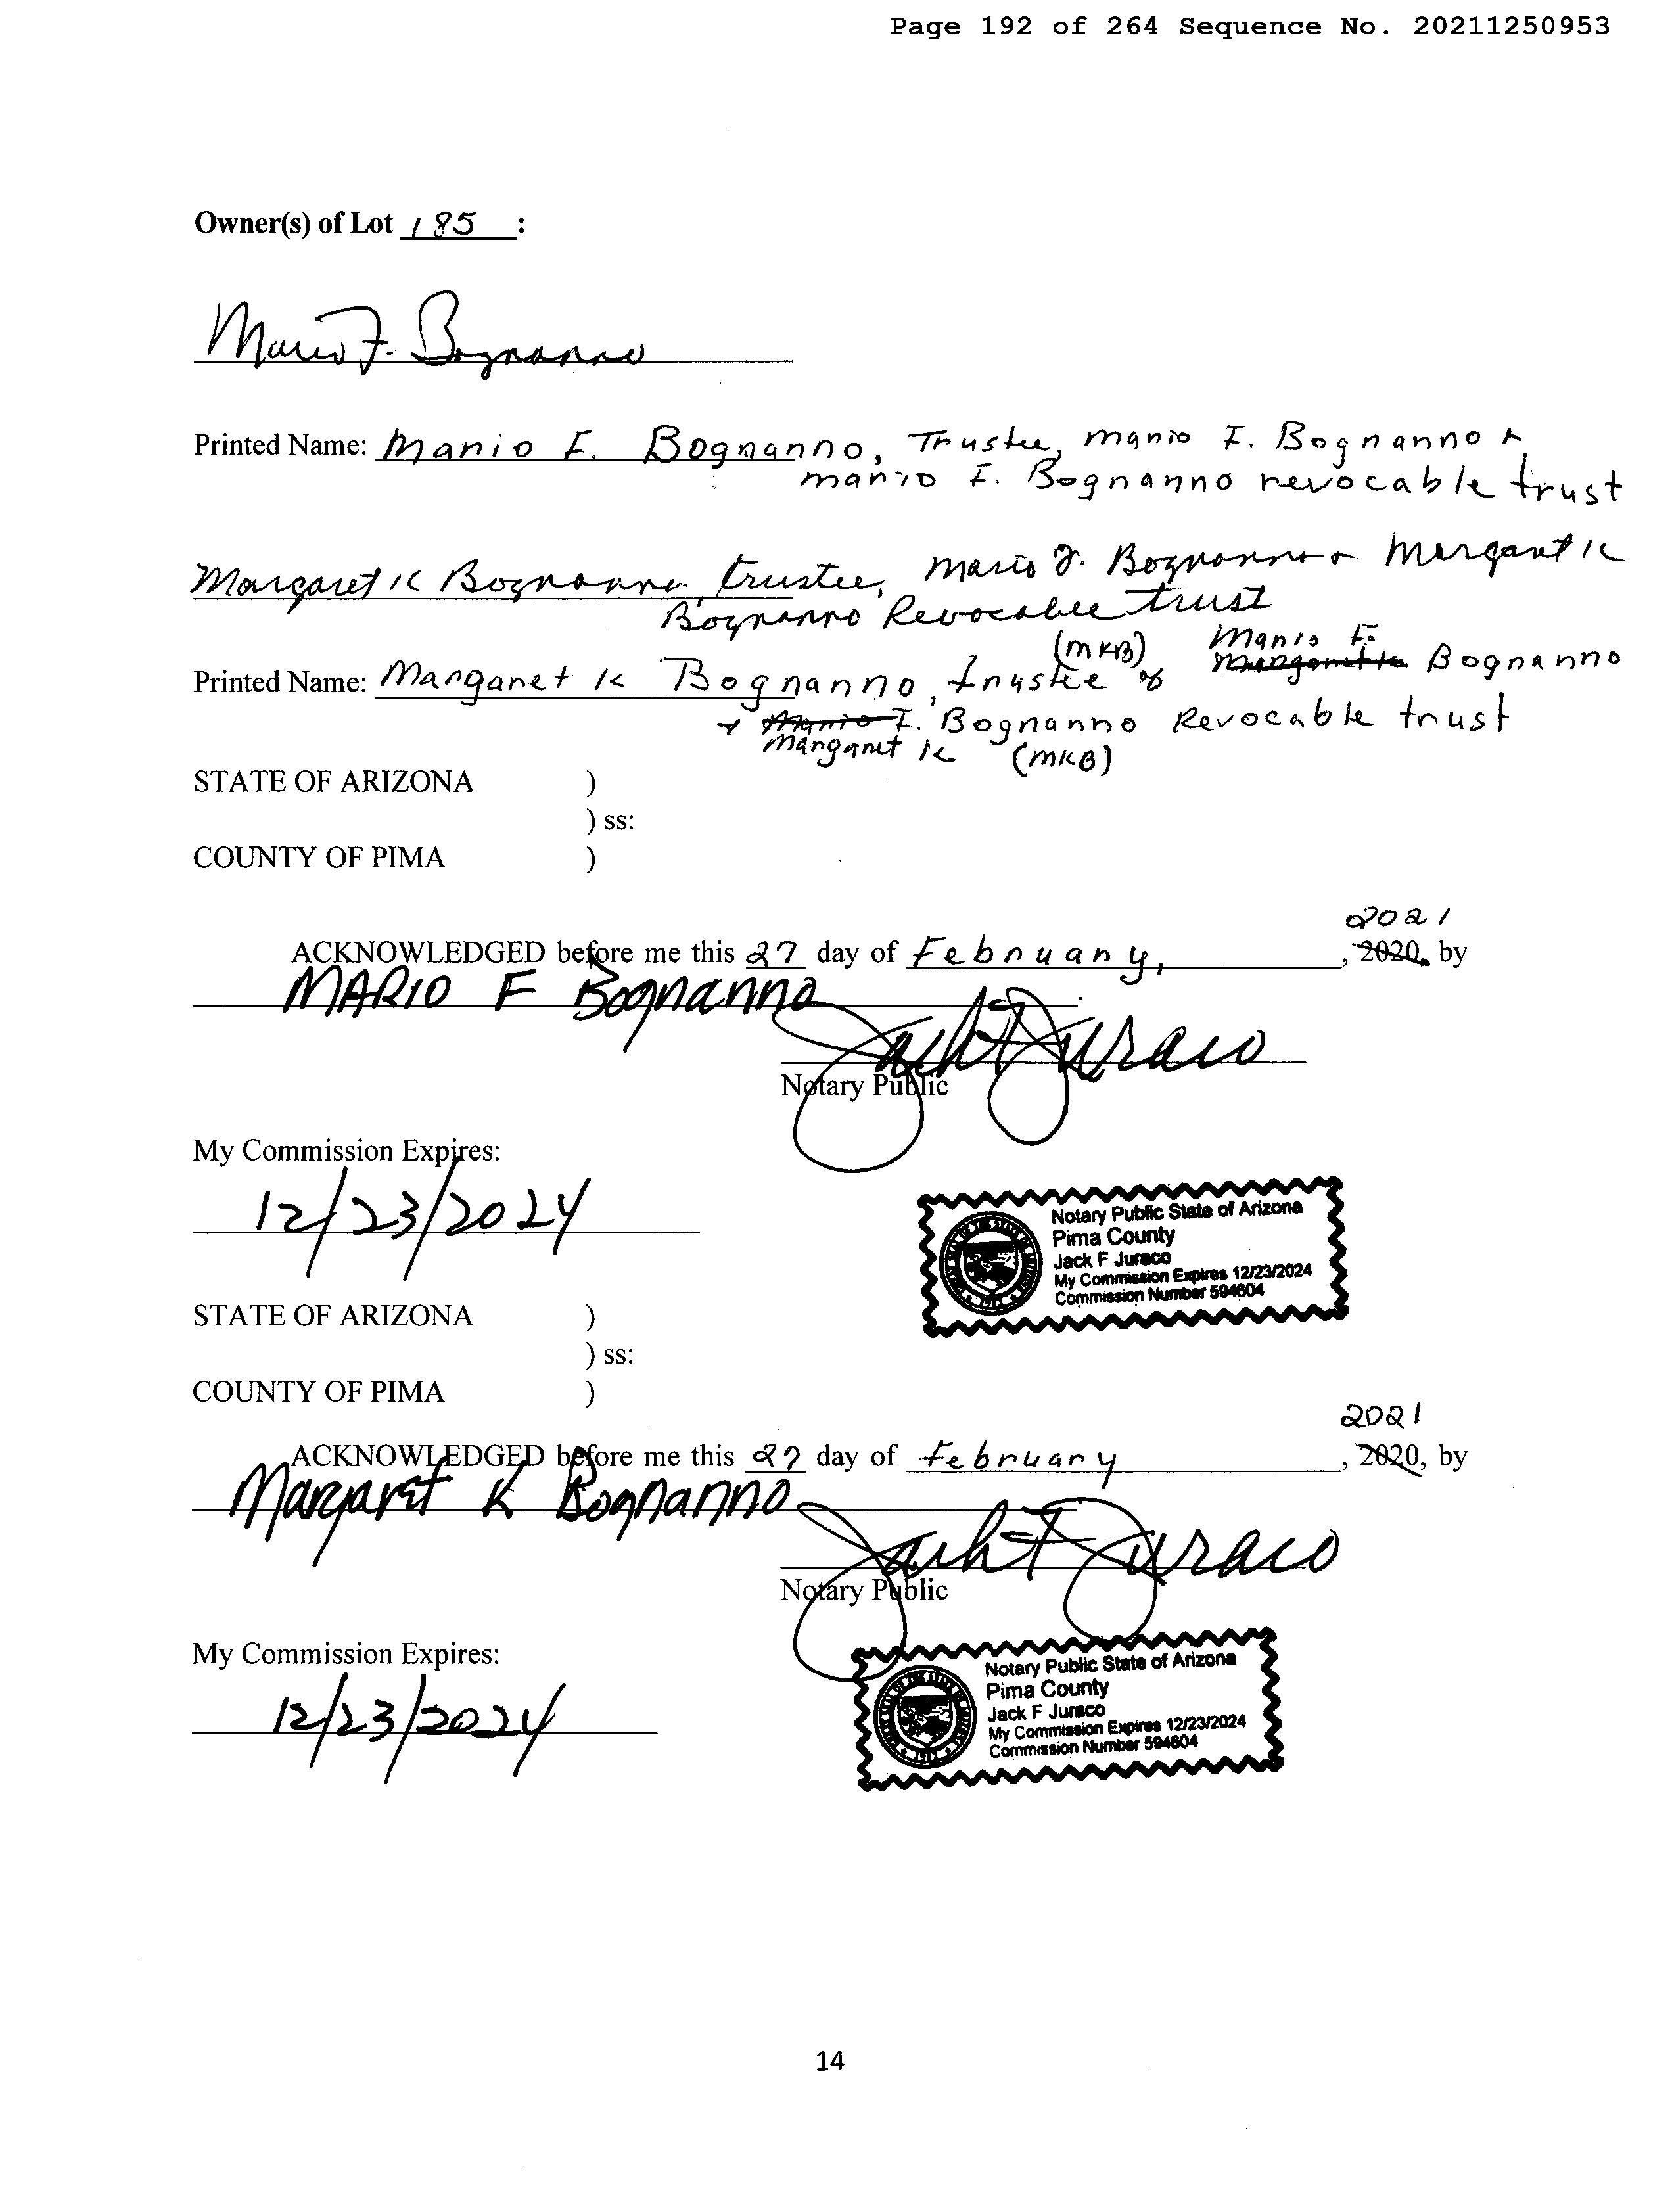 Page 192 of 264 Sequence No. 20211250953
Owner(s) of Lot 185 :
Mario F. Bognanno
Printed Name: Mario F. Bognanno, Trustee, Mario F. Bognanno &
Mario F. Bognanno revocable trust
Margaret K Bognanno, trustee, Mario F. Bognanno & Margaret K
Bognanno Revocable trust
(MKB) Mario F.
Printed Name: Margaret K Bognanno, trustee of Margaret K Bognanno
& Mario F. Bognanno Revocable trust
Margaret K (MKB)
STATE OF ARIZONA )
) ss:
COUNTY OF PIMA )
2021
ACKNOWLEDGED before me this 27 day of February, , 2020, by
MARIO F Bognanno
Jack F Juraco
Notary Public
My Commission Expires:
12/23/2024
Notary Public State of Arizona
Pima County
Jack F Juraco
My Commission Expires 12/23/2024
Commission Number 594604
STATE OF ARIZONA )
) ss:
COUNTY OF PIMA )
2021
ACKNOWLEDGED before me this 27 day of February , 2020, by
Margaret K Bognanno
Jack F Juraco
Notary Public
My Commission Expires:
12/23/2024
Notary Public State of Arizona
Pima County
Jack F Juraco
My Commission Expires 12/23/2024
Commission Number 594604
14